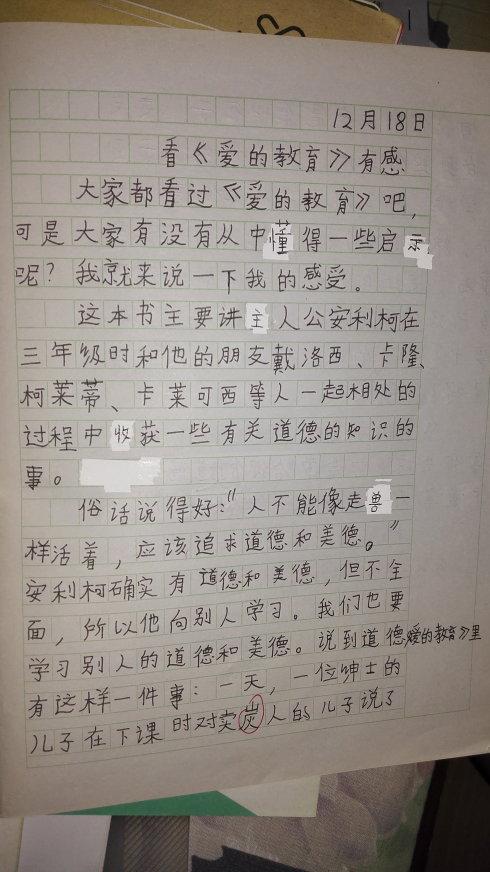 12月18日
看《爱的教育》有感
大家都看过《爱的教育》吧，
可是大家有没有从中懂得一些启示
呢？我就来说一下我的感受。
这本书主要讲主人公安利柯在
三年级时和他的朋友戴洛西、卡隆、
柯莱蒂、卡莱可西等人一起相处的
过程中收获一些有关道德的知识的
事。
俗话说得好："人不能像走兽一
样活着，应该追求道德和美德。"
安利柯确实有道德和美德，但不全
面，所以他向别人学习。我们也要
学习别人的道德和美德。说到道德，《爱的教育》里
有这样一件事：一天，一位绅士的
儿子在下课时对卖炭人的儿子说了